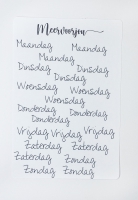 Meervoorjou
Maandag Maandag
Maandag
Dinsdag Dinsdag
Dinsdag
Woensdag Woensdag
Woensdag
Donderdag Donderdag
Donderdag
Vrijdag Vrijdag Vrijdag
Zaterdag Zaterdag
Zaterdag Zondag
Zondag Zondag